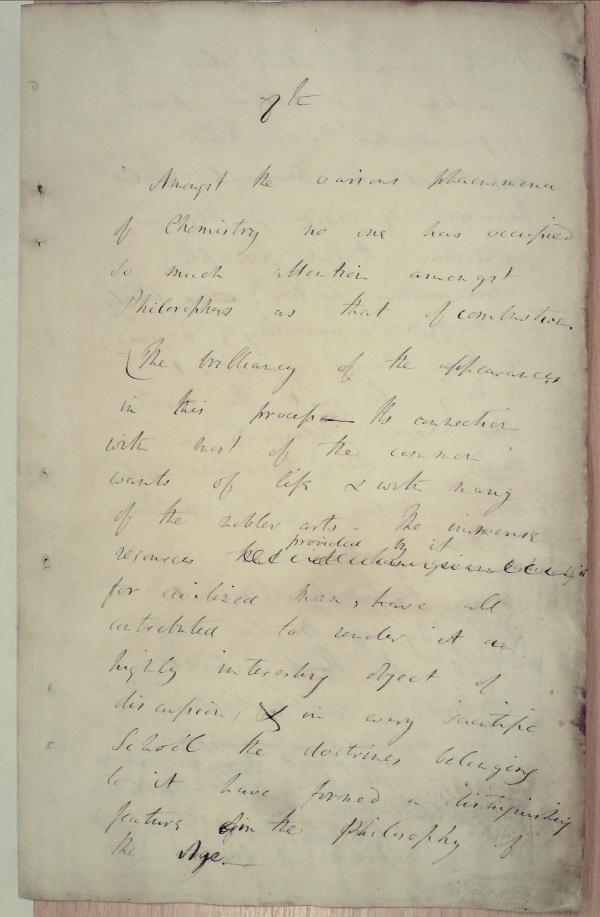 Amongst the various phaenomena
of Chemistry no one has occupied
so much attention amongst
Philosophers as that of combustion.
The brilliancy of the appearances
in this process — Its connection
with most of the common
wants of life & with many
of the nobler arts – The immense
provided by it
resources
for civilized Man, have all
contributed to render it an
highly interesting object of
discussion, & in every scientific
School the doctrines belonging
to it have formed a distinguishing
feature in the Philosophy of
the Age. —